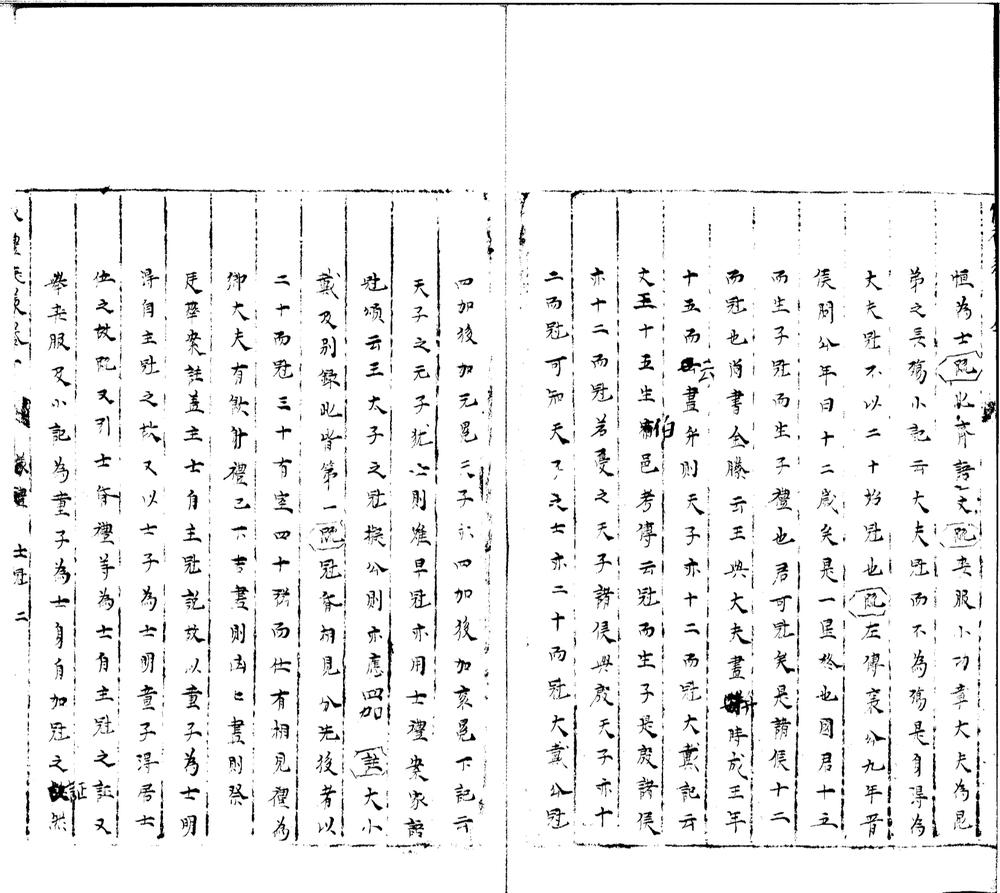 恒為士疏此齊語文疏喪服小功章大夫為昆
弟之長殤小記云大夫冠而不為殤是身得為
大夫冠不以二十始冠也疏左傳襄公九年晉
侯問公年曰十二歲矣是一星終也國君十五
而生子冠而生子禮也君可冠矣是諸侯十二
而冠也尚書金縢云王與大夫盡弁時成王年
十五而云盡弁則天子亦十二而冠大戴記云
文王十五生伯邑考傳云冠而生子是殷諸侯
亦十二而冠若夏之天子諸侯與殷天子亦十
二而冠可知天子之士亦二十而冠大戴公冠
四加後加元冕天子亦四加後加袞冕下記云
天子之元子犹士則雖早冠亦用士禮案家語
冠頌云王大子之冠擬公則亦應四加註大小
戴及别録此皆第一疏冠昏相見分先後者以
二十而冠三十有室四十強而仕有相見禮為
鄉大夫有飲射禮已下吉盡則凶凶盡則祭
疋釐案註盖主士自主冠説故以童子為士明
得自主冠之故又以士子為士明童子得居士
位之故疏又引士昏禮等為士自主冠之証又
舉喪服及小記為童子為士身自加冠之証然
士冠 二